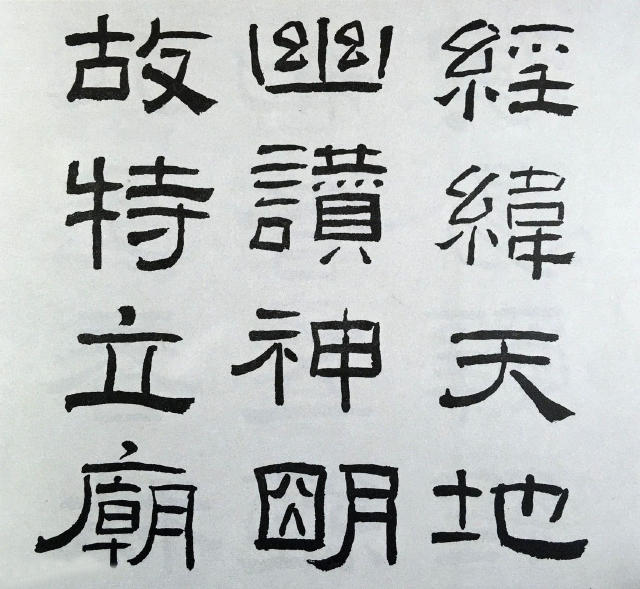 經緯天地
幽讃神朙
故特立廟